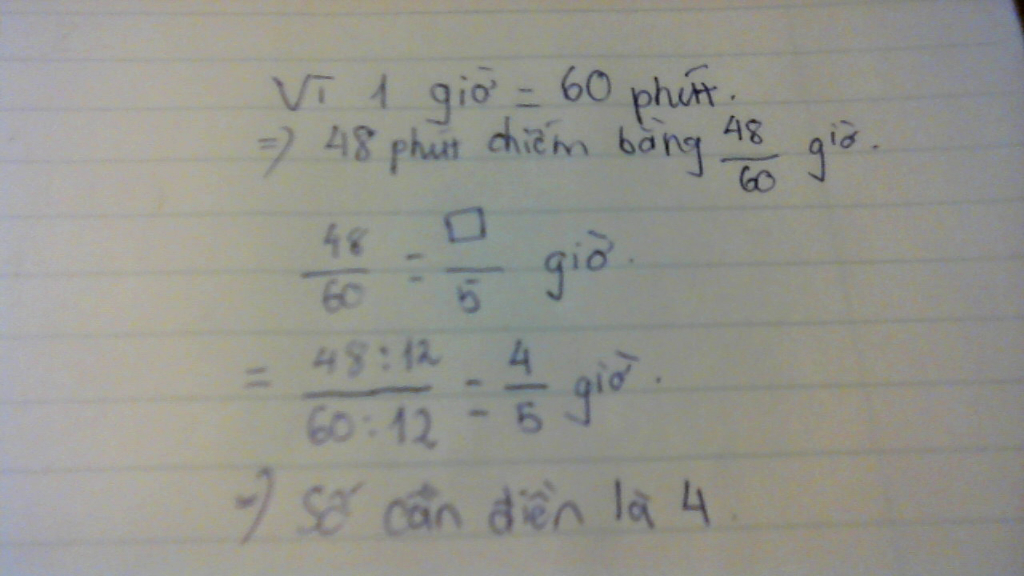 Vì 1 giờ = 60 phút.
=> 48 phút chiếm bằng 48/60 giờ.
48/60 = □/5 giờ.
= 48:12/60:12 = 4/5 giờ.
=> Số cần điền là 4.